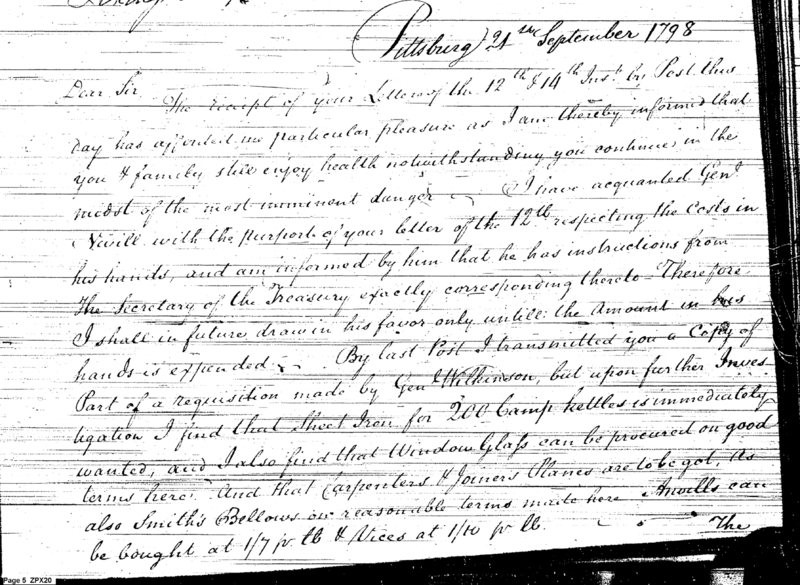 Pittsburg 21st September 1798
Dear Sir
The receipt of your Letters of the 12th & 14th Inst. by Post this
day has afforded me particular pleasure as I am thereby informed that
you & family still enjoy health notwithstanding you continue in the
midst of the most imminent danger I have acquanted Genl
Nevill with the purport of your letter of the 12th respecting the Costs in
his hands, and am informed by him that he has instructions from
the Secretary of the Treasury exactly corresponding thereto Therefore
I shall in future draw in his favor only untill the Amount in his
hands is expended By last Post I transmitted you a Copy of
Part of a requisition made by Genl Wilkinson, but upon further Inves
tigation I find that Sheet Iron for 200 Camp kettles is immediately
wanted, and I also find that Window Glass can be procured on good
terms here. And that Carpenters & Joiners Planes are to be got, As
also Smith's Bellows on reasonable terms made here Anvills can
be bought at 1/7 pr lb & Vices at 1/10 pr lb. The
Page 5 ZPX20